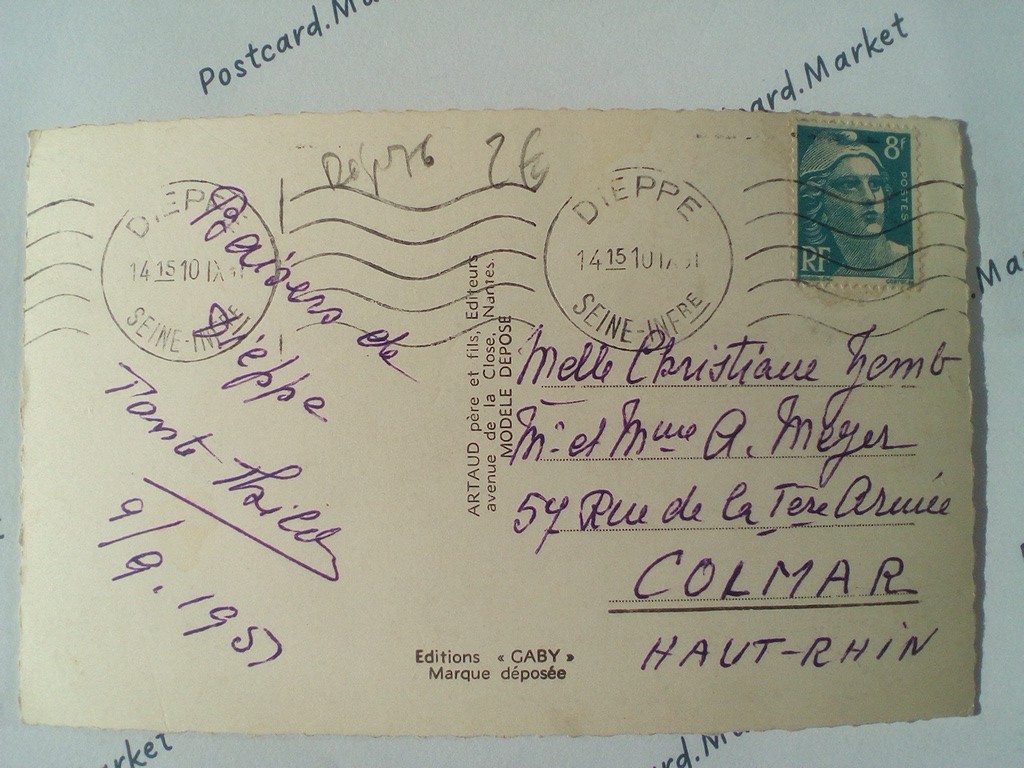 Postcard.Market
Market
8f
POSTES
RF
2€
DIEPPE
14 15 10 IX
SEINE-INFRE
DIEPPE
14 15 10 IX 51
SEINE-INFRE
Baisers de
Dieppe
Tante
9/9.1951
ARTAUD père et fils, Editeurs
avenue de la Close, Nantes.
MODELE DEPOSE
Melle Christiane
Mr et Mme A. Meyer
57 Rue de la 1ère Armée
COLMAR
HAUT-RHIN
Editions « GABY »
Marque déposée